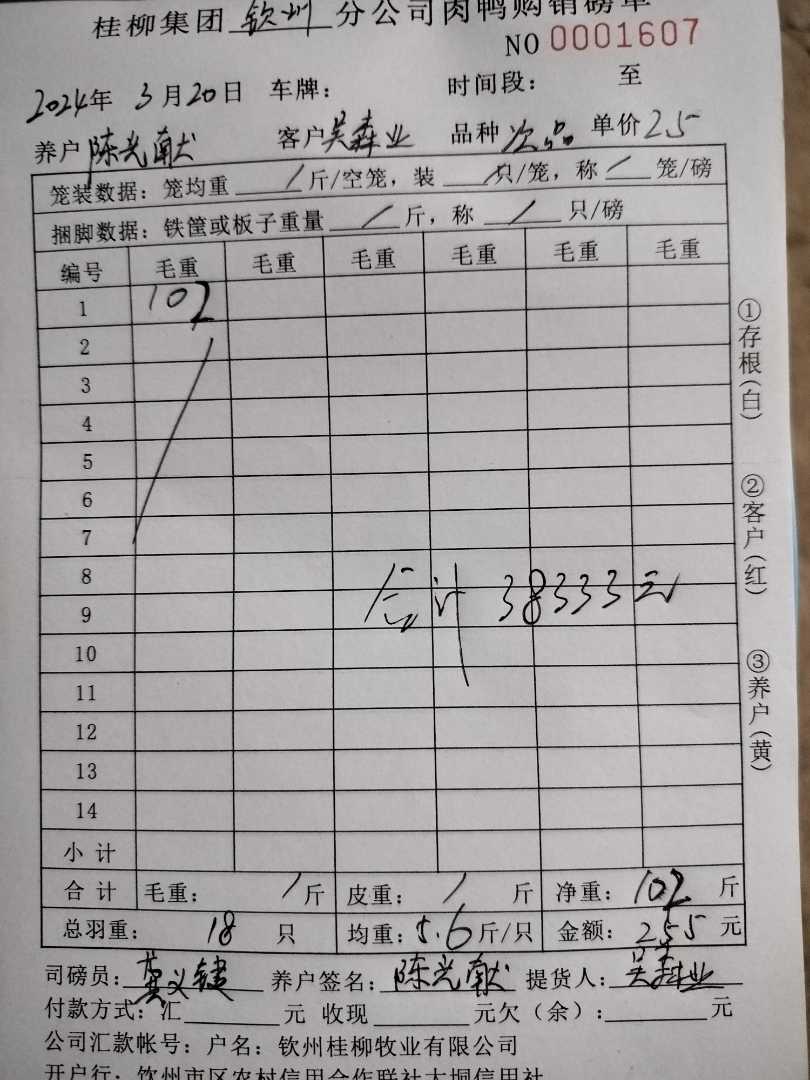 桂柳集团 钦州 分公司肉鸭购销磅单
NO 0001607
2024年 3月20日 车牌： 时间段： 至
养户 陈光献 客户 吴森业 品种 次品 单价 2.5
笼装数据：笼均重 / 斤/空笼，装 / 只/笼，称 / 笼/磅
捆脚数据：铁筐或板子重量 / 斤，称 / 只/磅
编号 毛重 毛重 毛重 毛重 毛重 毛重
1 102
2
3
4
5
6
7
8
合计 38333元
9
10
11
12
13
14
小计
合计 毛重： / 斤 皮重： / 斤 净重：102 斤
总羽重： 18 只 均重：5.6 斤/只 金额：255 元
司磅员： 养户签名：陈光献 提货人：吴森业
付款方式：汇 元 收现 元欠（余）： 元
公司汇款帐号：户名：钦州桂柳牧业有限公司
开户行：钦州市区农村信用合作联社大垌信用社
①存根（白）
②客户（红）
③养户（黄）